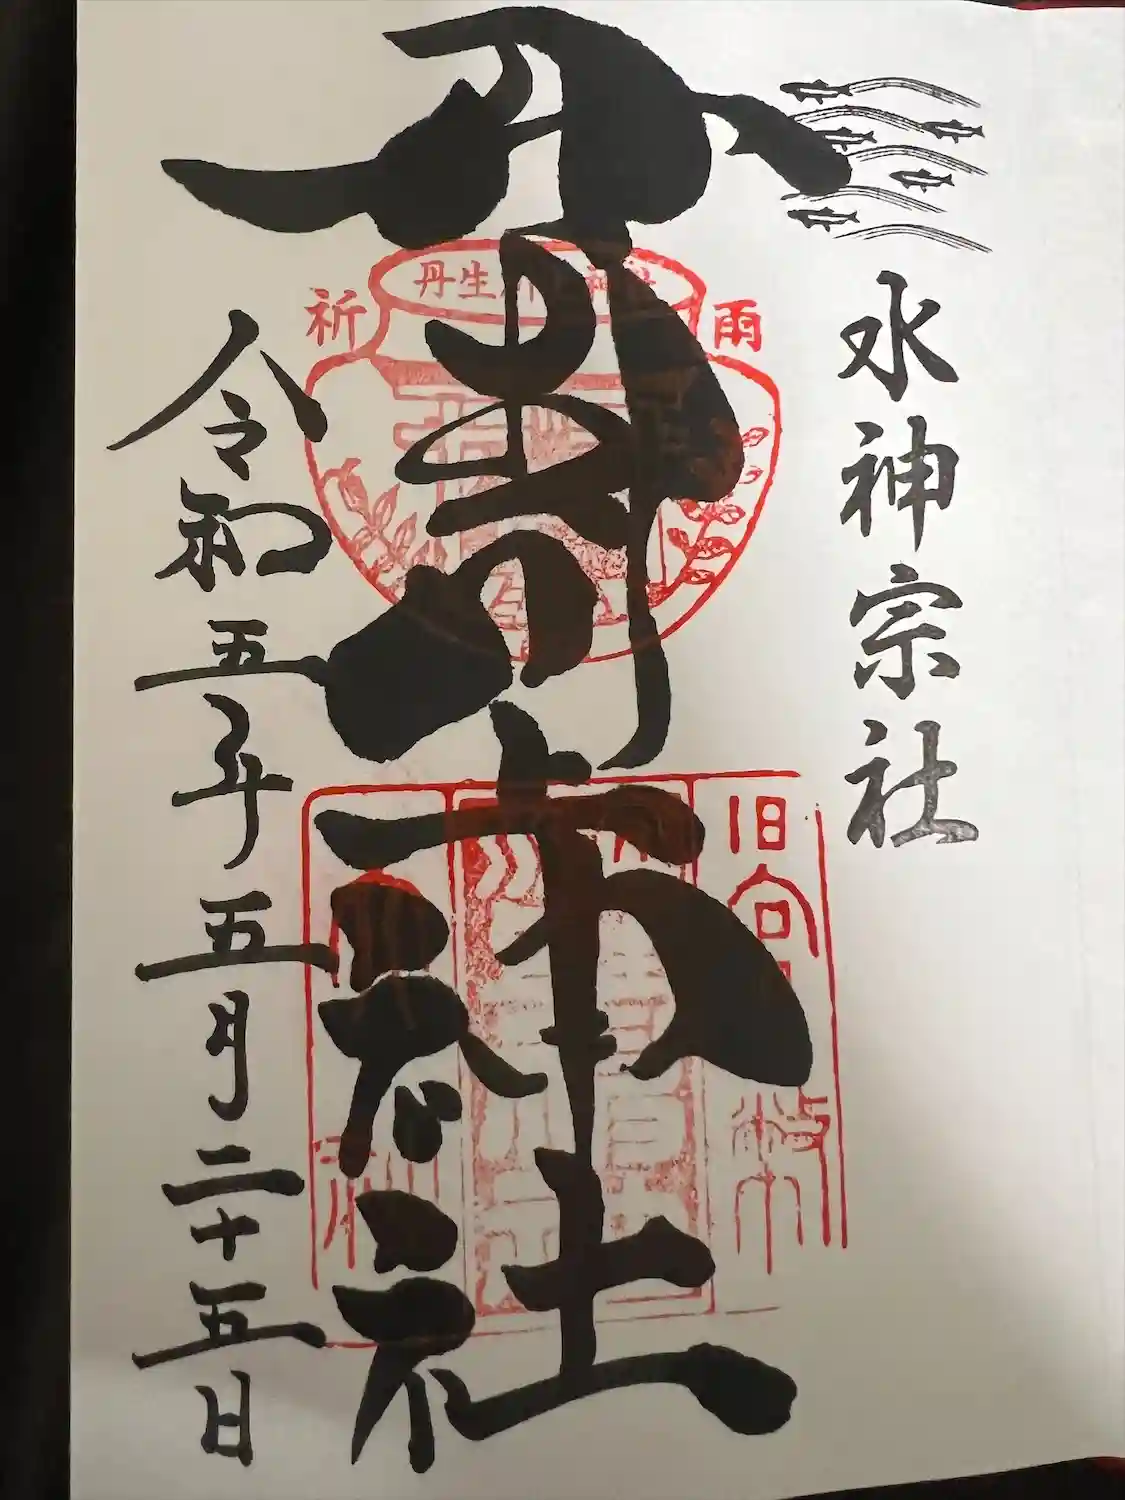 水神宗社
丹生川上神社
令和五年五月二十五日
祈
雨
丹生川上神社